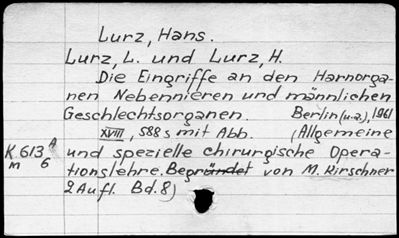 Lurz, Hans.
Lurz, L. und Lurz, H.
Die Eingriffe an den Harnorga-
nen Nebennieren und männlichen
Geschlechtsorganen. Berlin (u.a.), 1961
XVIII, 588 s mit Abb. (Allgemeine
K 613 A und spezielle chirurgische Opera-
m 6 tionslehre. Begründet von M. Kirschner
2 Aufl. Bd. 8)